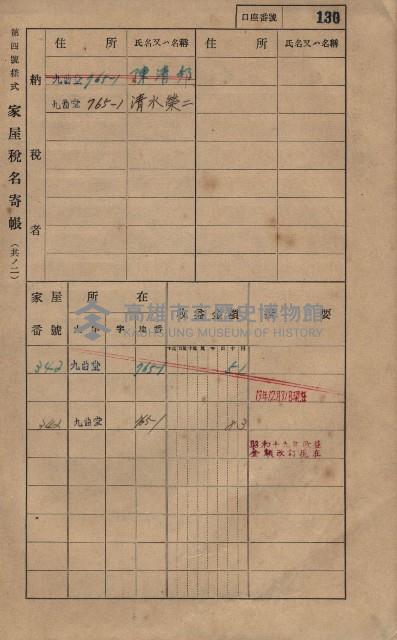 口座番號 130
第四號樣式 家屋稅名寄帳 (共ノ二)
納稅者
住所 氏名又ハ名稱 住所 氏名又ハ名稱
九曲堂 765-1 陳清
九曲堂 765-1 清水榮二
家屋番號 所在 要
字 地番
高雄市立歷史博物館
KAOHSIUNG MUSEUM OF HISTORY
342 九曲堂 765-1 51
13年12月31日現在
342 九曲堂 765-1 83
昭和十九年收益
金額改訂現在